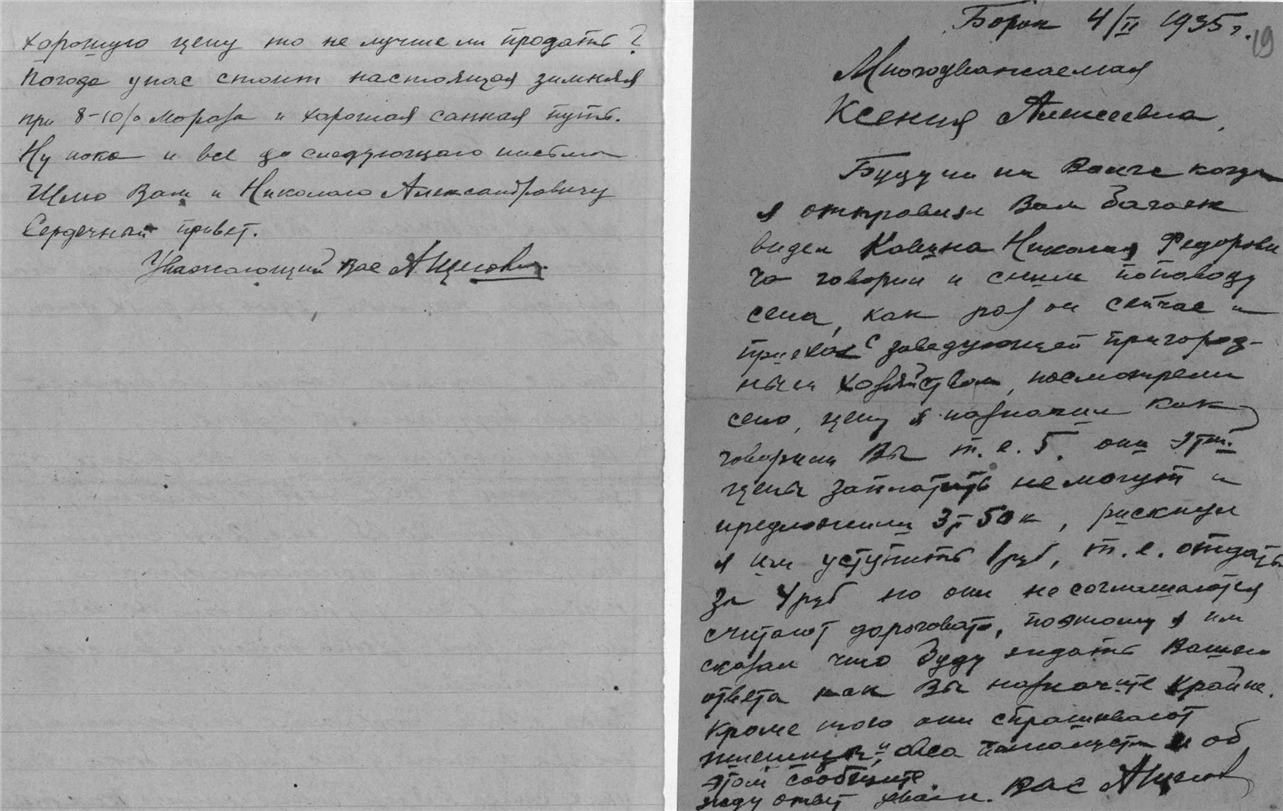 хорошую цену то не лучше ли продать?
Погода у нас стоит настоящая зимняя
при 8-10% мороза и хорошая санная путь.
Ну пока и все до следующаго письма
Шлю Вам и Николаю Александровичу
Сердечный привет.
Уважающий Вас
Борок 4/II 1935 г.
19
Многоуважаемая
Ксения Алексеевна,
Будучи на Волге когда
я отправлял Вам багаж
видел Николая Федорови
ча говорил и с ним поповоду
сена, как раз он сейчас и
приехал с заведующей пригород-
ным хозяйством, посмотрели
сено, цену я назначил как
говорили Вы т.е. 5. они этой
цены заплатить не могут и
предложили 3р 50к, рискнул
я им уступить 1руб, т.е. отдать
за 4руб но они не соглашаются
считают дороговато, поэтому я им
сказал что буду ждать Вашего
ответа как Вы назначите крайне.
Кроме того они спрашивают
и овса пожалуста и об
этом сообщите.
жду ответ уважа. Вас